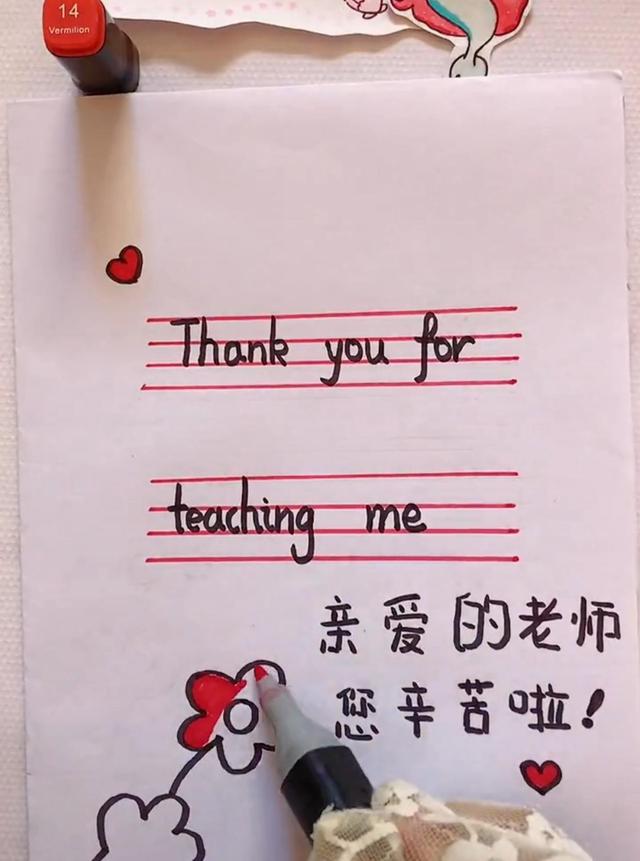 14
Vermilion
Thank you for
teaching me
亲爱的老师
您辛苦啦!